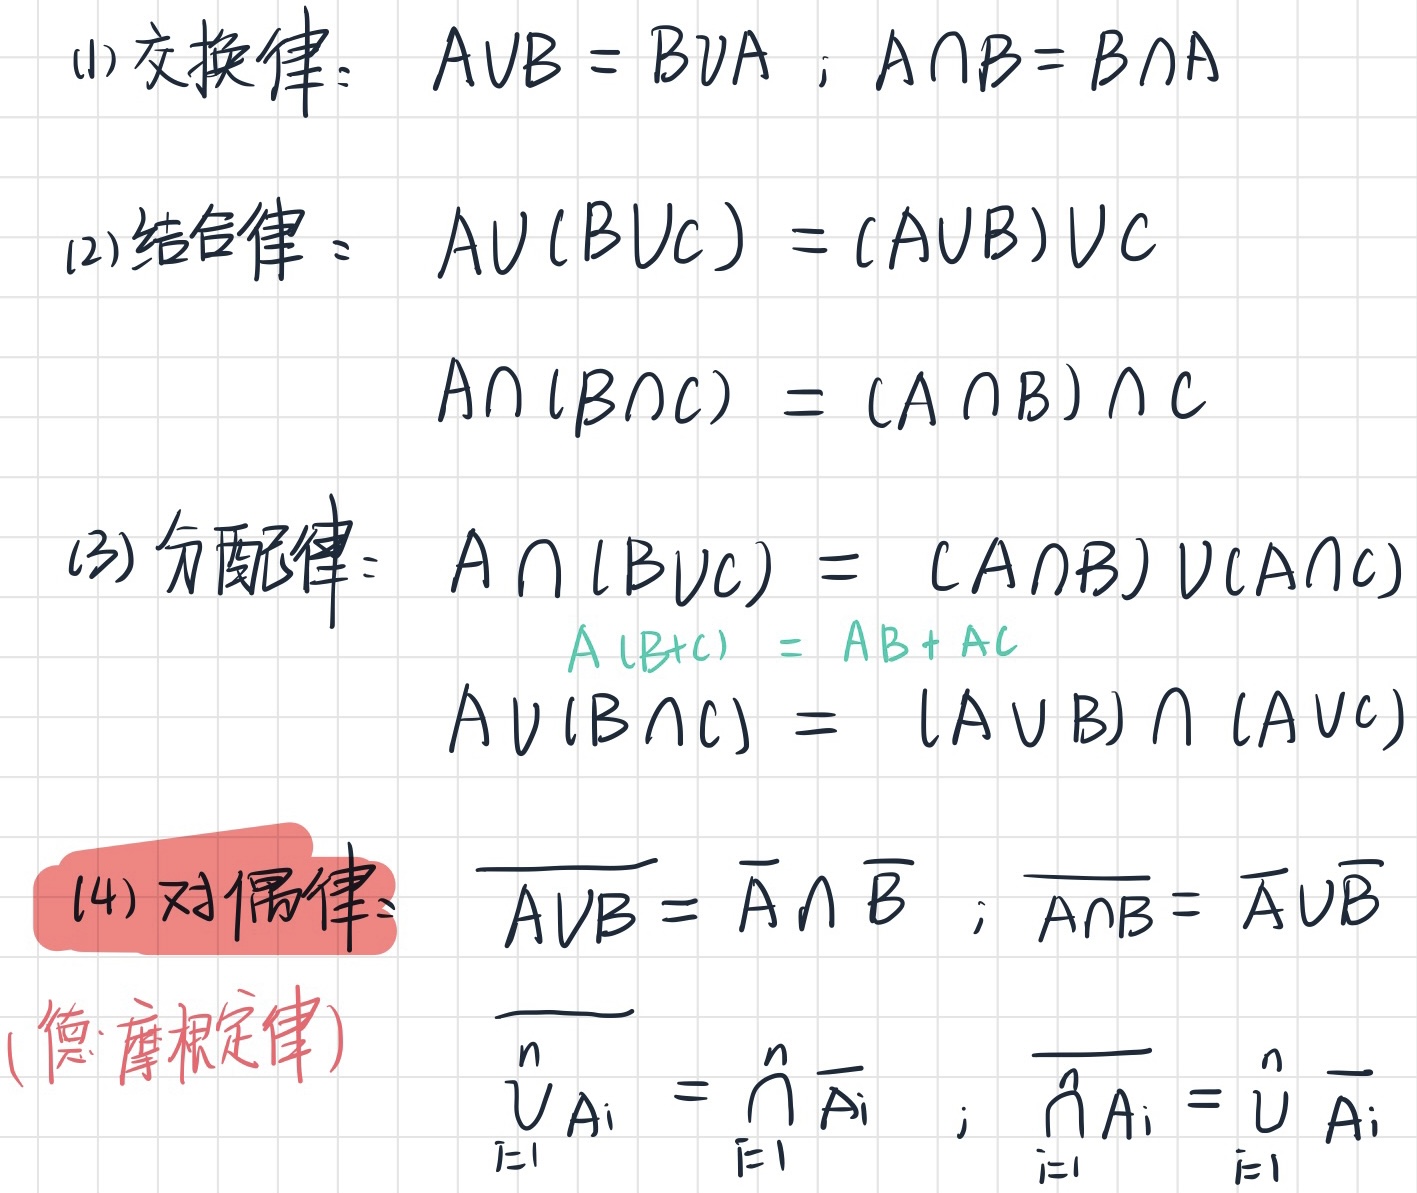 (1) 交换律: A∪B = B∪A ; A∩B = B∩A
(2) 结合律: A∪(B∪C) = (A∪B)∪C
A∩(B∩C) = (A∩B)∩C
(3) 分配律: A∩(B∪C) = (A∩B)∪(A∩C)
A(B+C) = AB+AC
A∪(B∩C) = (A∪B)∩(A∪C)
(4) 对偶律: \overline{A∪B} = \overline{A}∩\overline{B} ; \overline{A∩B} = \overline{A}∪\overline{B}
(德·摩根定律) \overline{\bigcup_{i=1}^{n} A_i} = \bigcap_{i=1}^{n} \overline{A_i} ; \overline{\bigcap_{i=1}^{n} A_i} = \bigcup_{i=1}^{n} \overline{A_i}